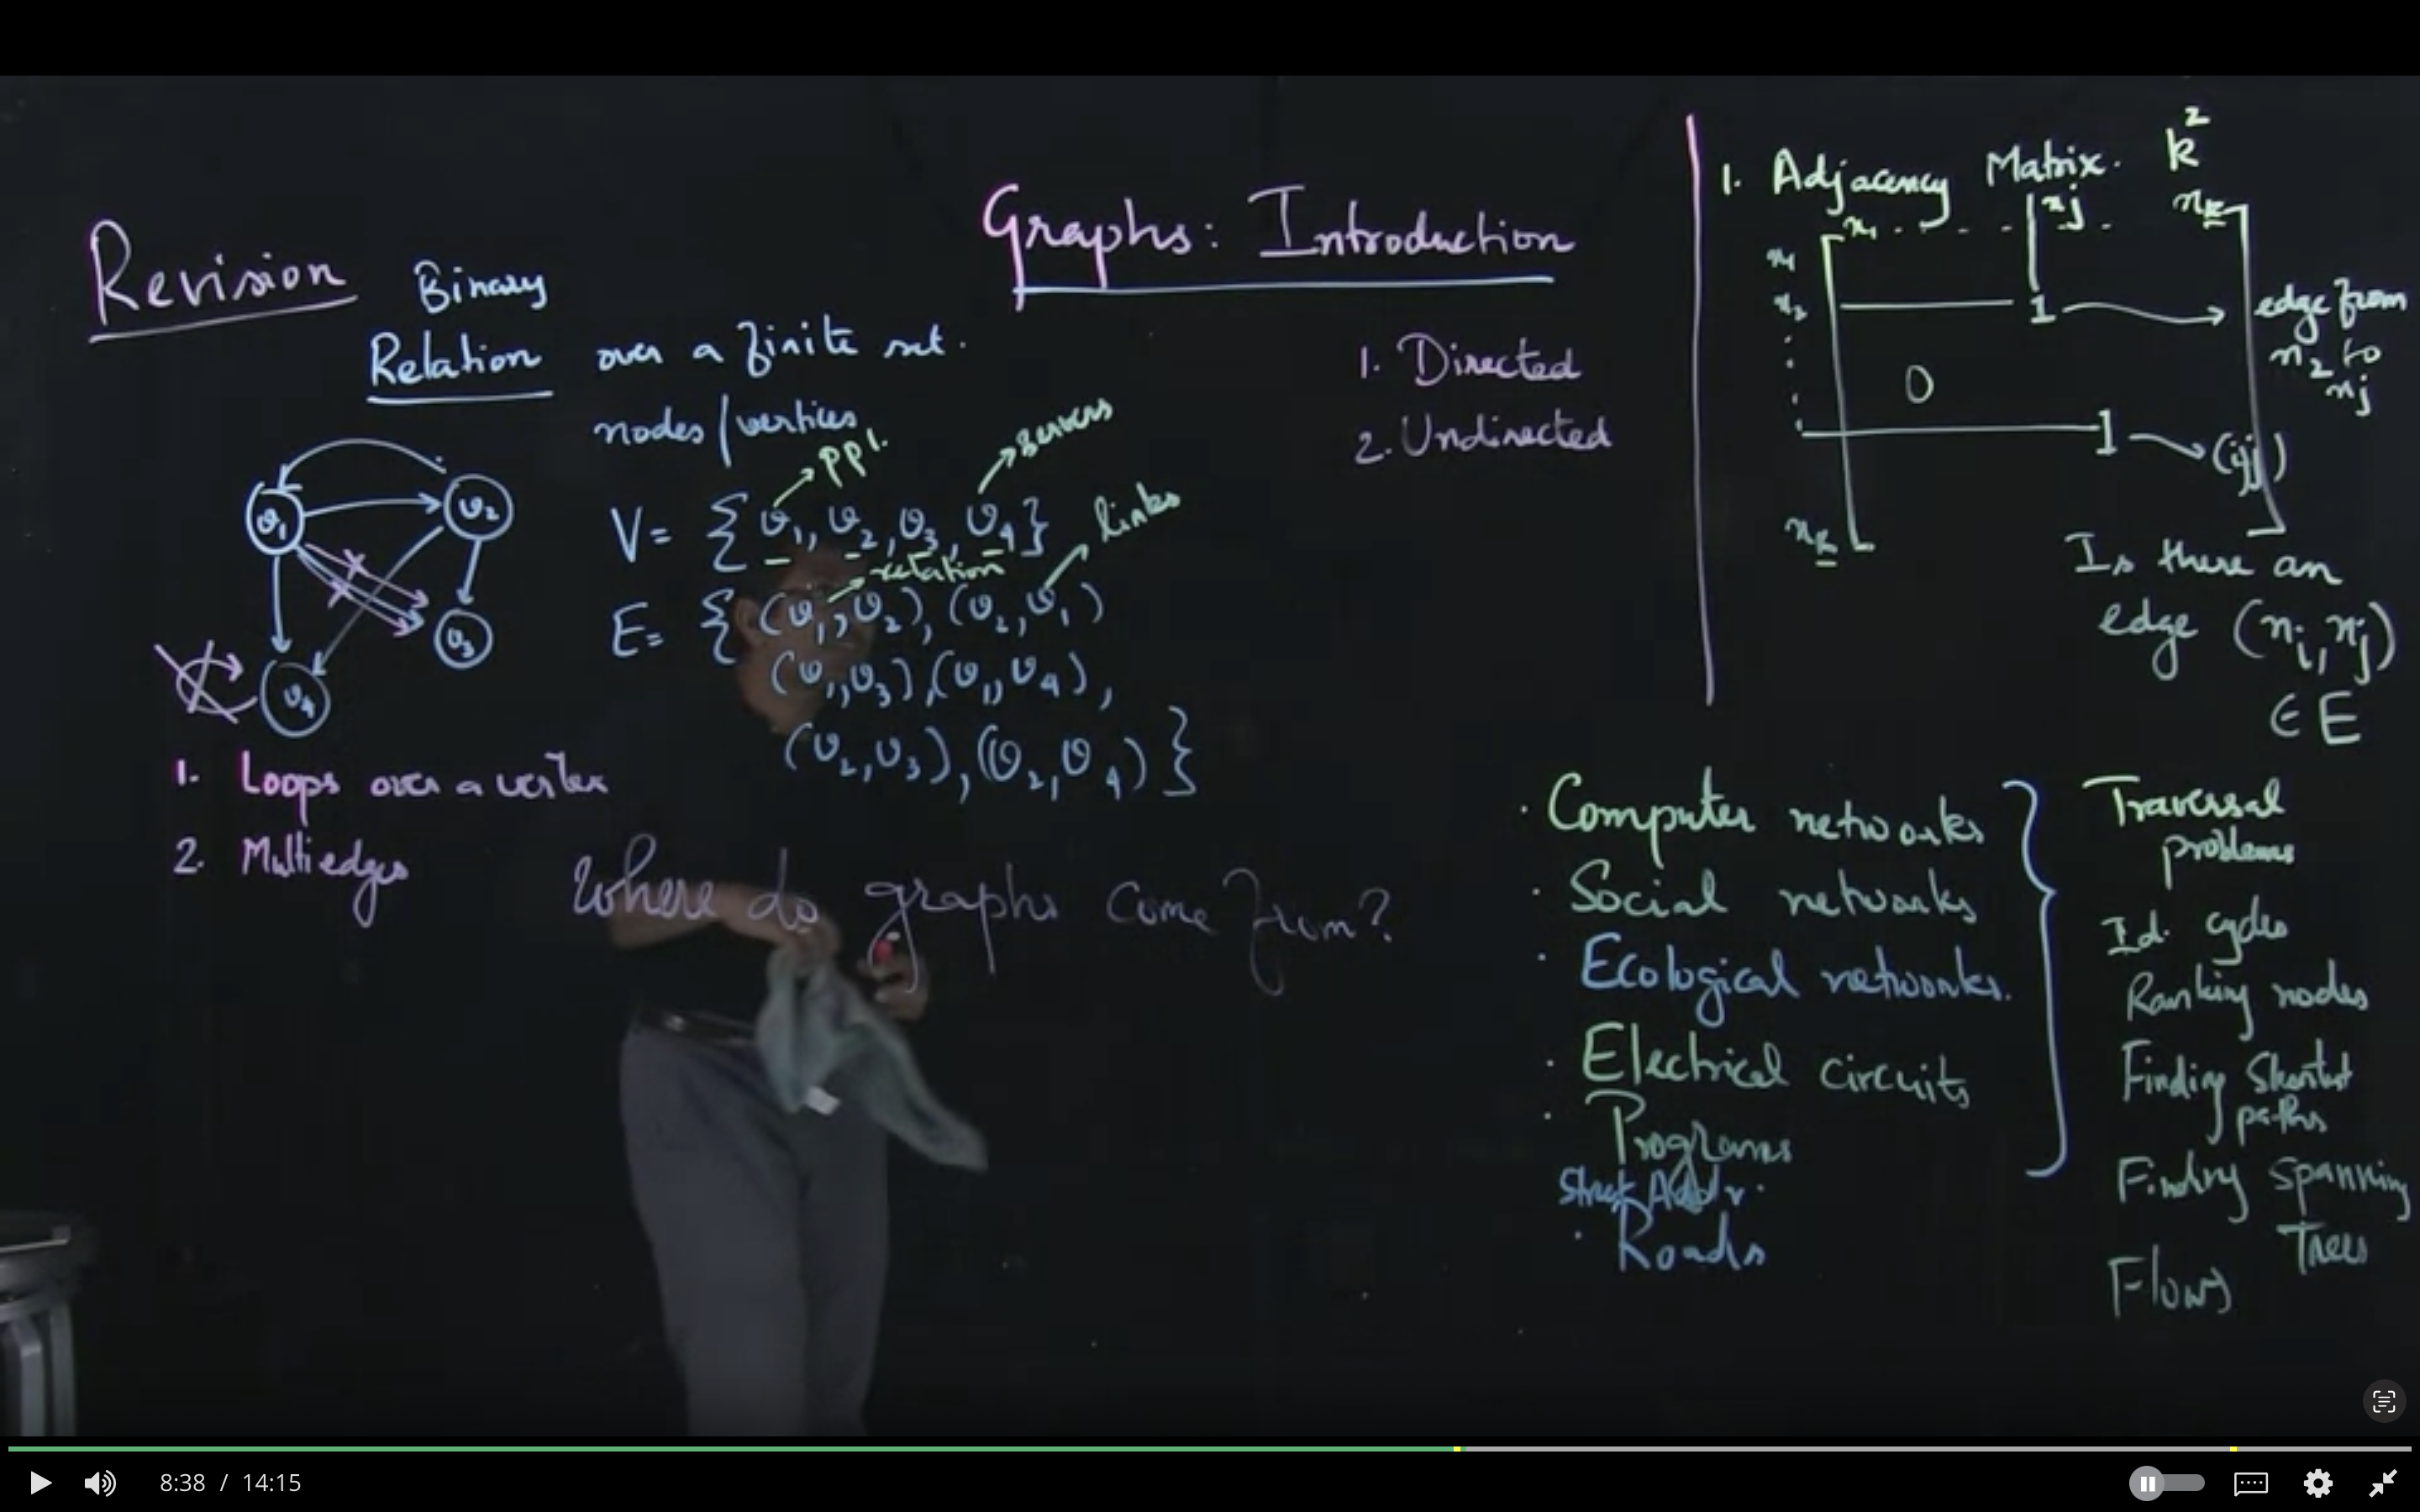 Graphs: Introduction
Revision
Binary
Relation over a finite set.
nodes/vertices
ppl.
servers
V= {v₁, v₂, v₃, v₄}
links
relation
E= {(v₁, v₂), (v₂, v₁)
(v₁, v₃), (v₁, v₄),
(v₂, v₃), (v₂, v₄)}
v₁
v₂
v₃
v₄
1. Loops over a vertex
2. Multiedges
Where do graphs come from?
1. Directed
2. Undirected
1. Adjacency Matrix. k²
n₁ . . . nj . . nk
n₁
n₂ 1 edge from
n₂ to
nj
0
1 (i,j)
nk
Is there an
edge (ni, nj)
∈ E
· Computer networks
· Social networks
· Ecological networks.
· Electrical circuits
· Programs
· Roads
Traversal
problems
Id. cycles
Ranking nodes
Finding Shortest
paths
Finding Spanning
Trees
Flows
8:38 / 14:15